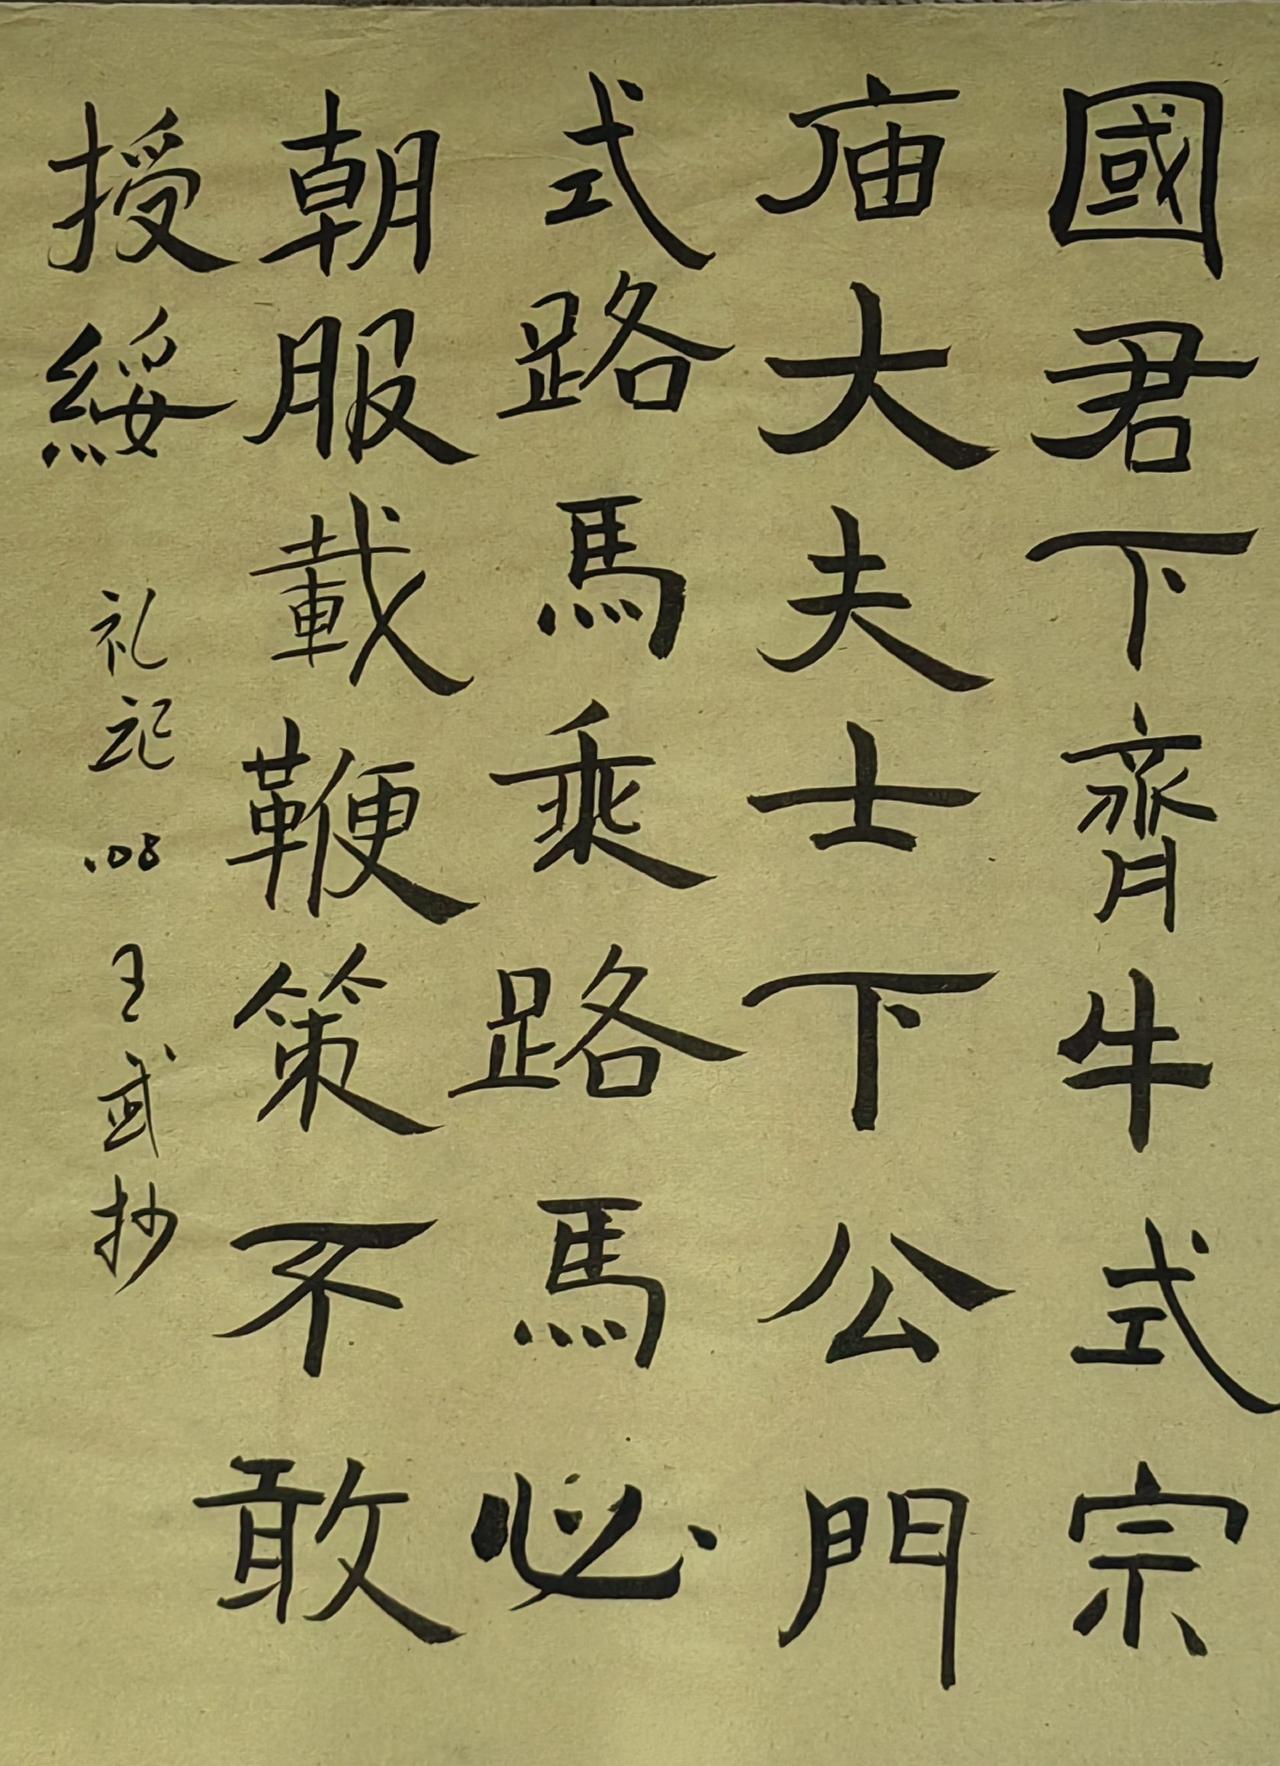 國君下齊牛式宗
庙大夫士下公門
式路馬乘路馬必
朝服載鞭策不敢
授綏
礼记.08王武抄